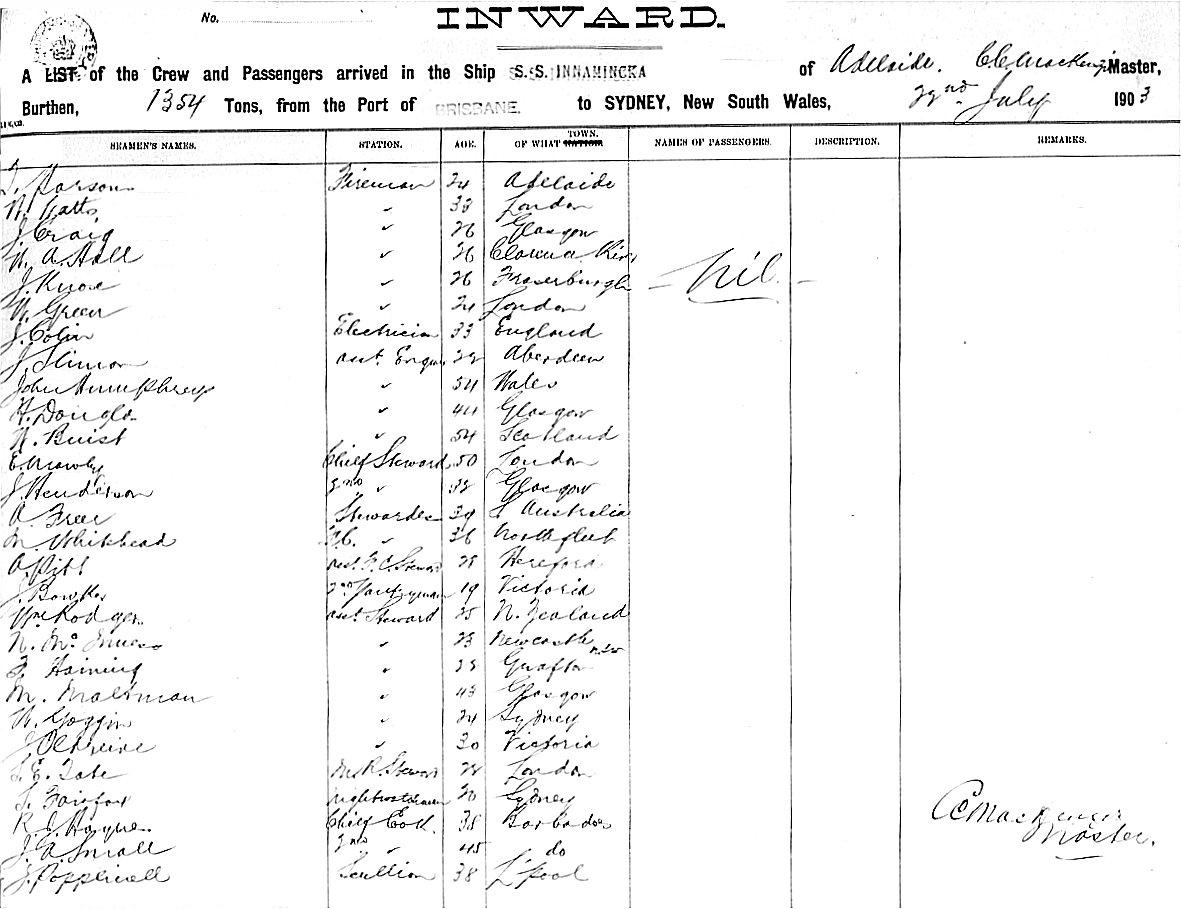 No.
INWARD.
A LIST of the Crew and Passengers arrived in the Ship S.S. INNAMINCKA of Adelaide. C.C. Mackenzie Master,
Burthen, 1354 Tons, from the Port of BRISBANE. to SYDNEY, New South Wales, 22nd July 1903
SEAMEN'S NAMES. STATION. AGE. OF WHAT NATION TOWN. NAMES OF PASSENGERS. DESCRIPTION. REMARKS.
Parson Fireman 24 Adelaide
W. Watts " London
J. Craig " 26 Glasgow
W. A. Hall " 26
J. Knox " 26 Fraserburgh — Nil. —
W. Green " 24 London
J. Colin Electrician 33 England
J. Slimon asst. Engnr Aberdeen
John Humphreys " 54 Wales
H. Douglas " 44 Glasgow
W. Buist " 54 Scotland
E. Mawby Chief Steward 50 London
J. Henderson 2nd " 32 Glasgow
A. Free Stewardess 39 S Australia
M. Whitehead F.C. " 36 Northfleet
A. Pitt asst. F.C. Steward Hereford
J. Bowker 2nd Pantryman 19 Victoria
Wm Rodger asst. Steward 25 N. Zealand
N. McInnes " 23 Newcastle NSW
Haining " Grafton
M. Maltman " 43 Glasgow
W. Goggin " 24 Sydney
J. " 30 Victoria
E. Tate M.R. Steward London
Fairfax nightwatchman Sydney
R. J. Haynes Chief Cook 38 Barbados
J. A. Small 2nd " 45 do
J. Popplewell Scullion 38 L'pool
CC Mackenzie
Master.